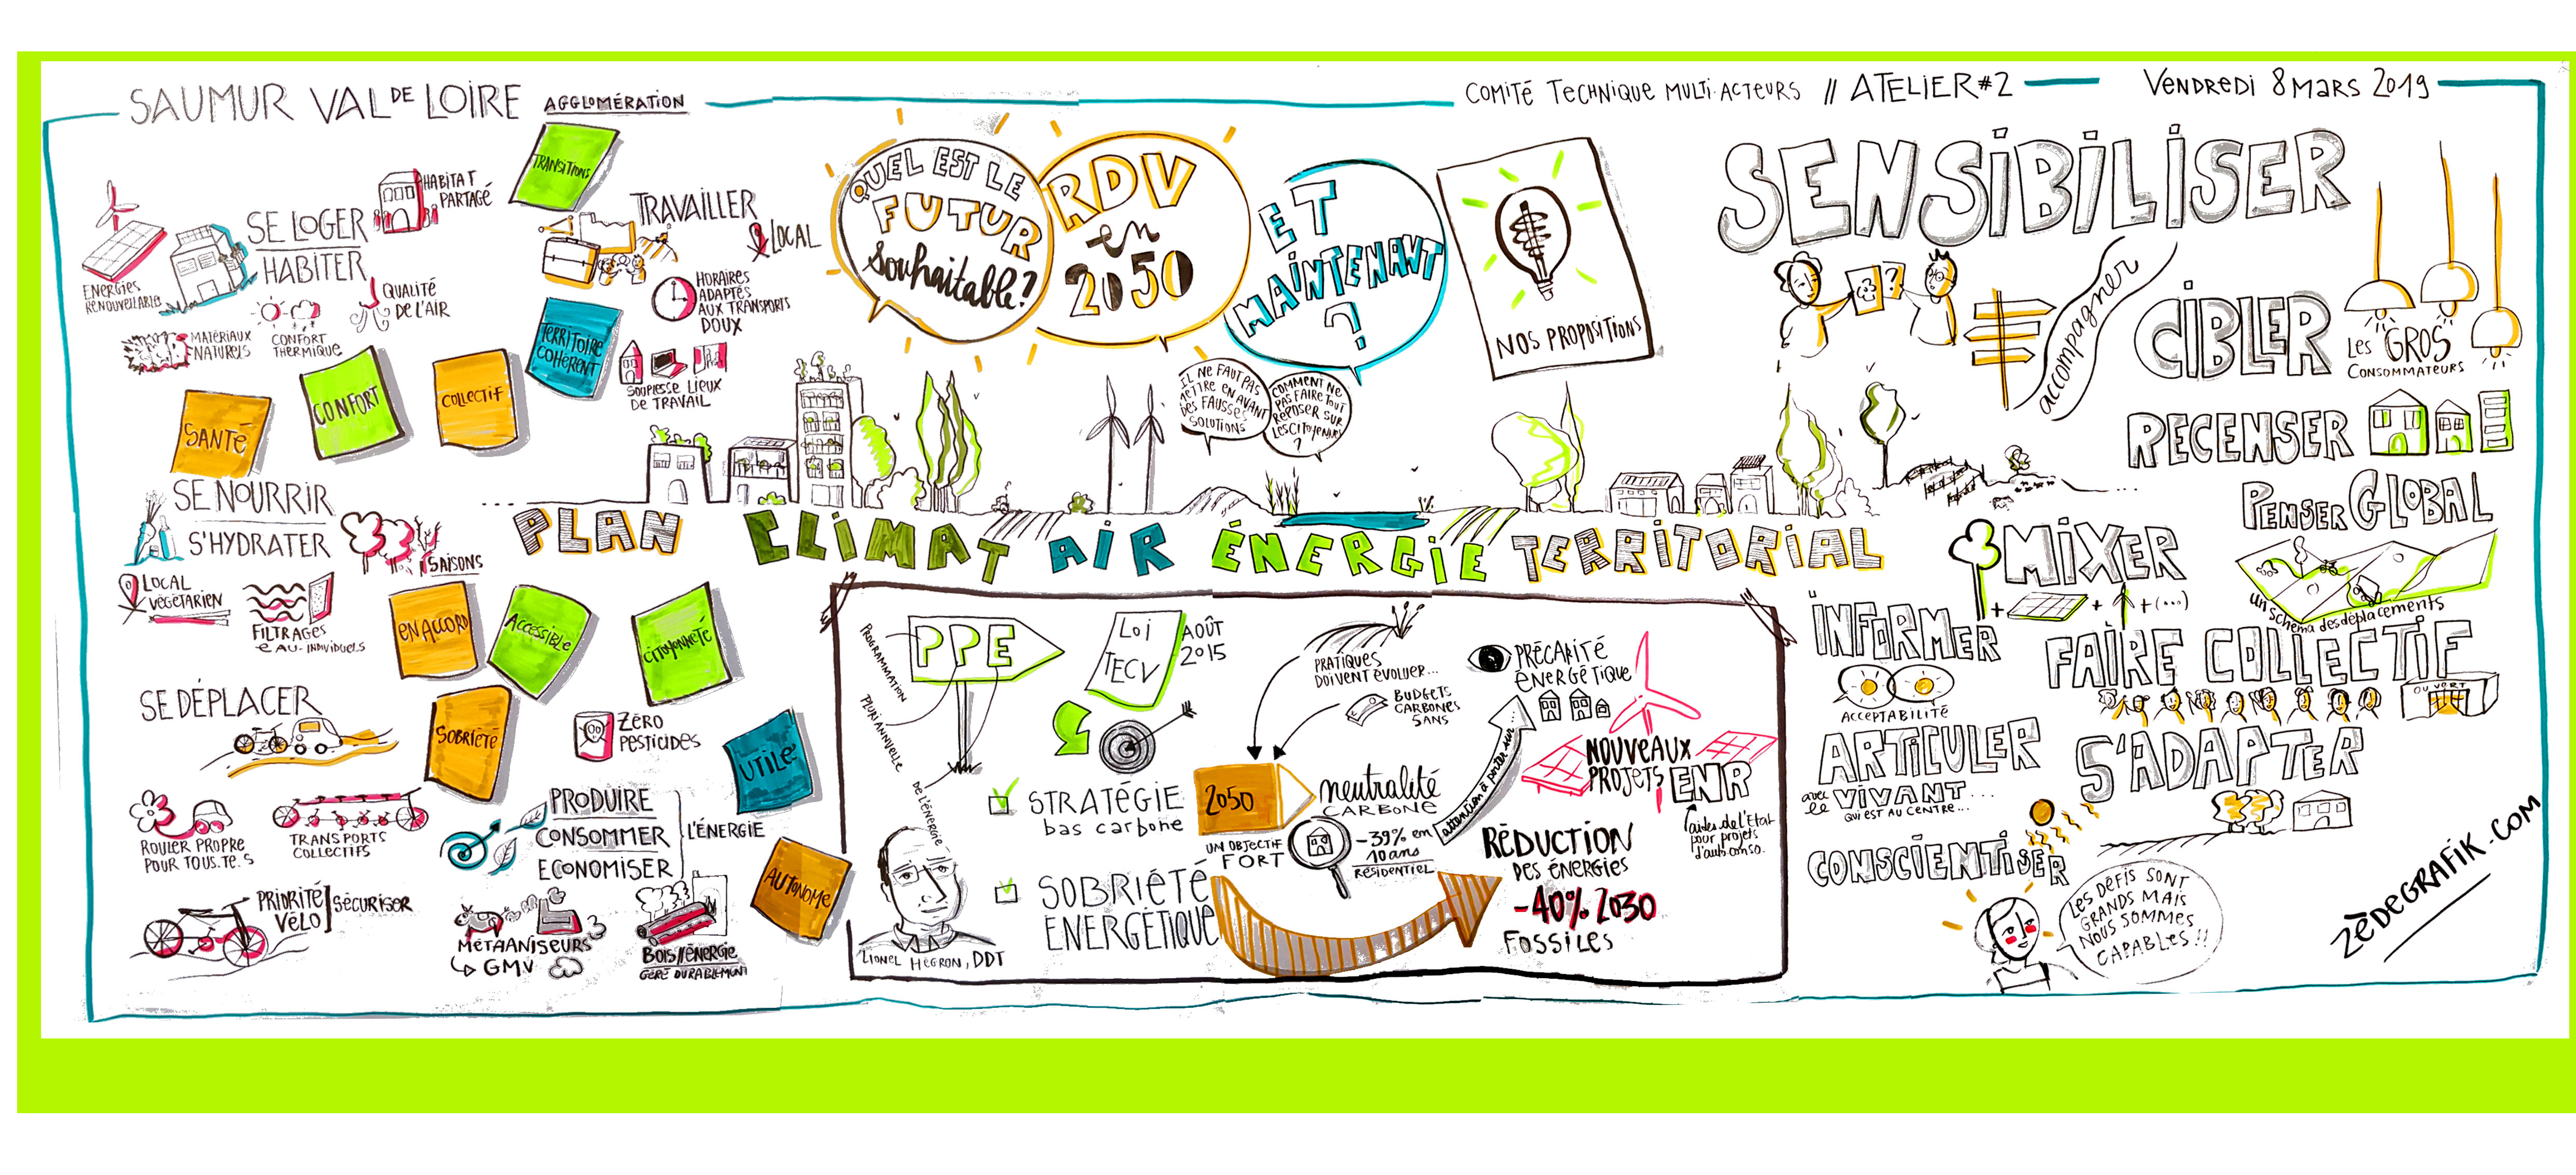 SAUMUR VAL DE LOIRE AGGLOMÉRATION
COMITÉ TECHNIQUE MULTI-ACTEURS // ATELIER #2
VENDREDI 8 MARS 2019
TRANSITIONS
HABITAT
PARTAGÉ
SE LOGER
HABITER
ENERGIES
RENOUVELLABLE
QUALITÉ
DE L'AIR
MATÉRIAUX
NATURELS
CONFORT
THERMIQUE
TRAVAILLER
LOCAL
HORAIRES
ADAPTÉS
AUX TRANSPORTS
DOUX
TERRITOIRE
COHÉRENT
SOUPLESSE LIEUX
DE TRAVAIL
SANTÉ
CONFORT
COLLECTIF
SE NOURRIR
S'HYDRATER
SAISONS
LOCAL
VÉGÉTARIEN
FILTRAGES
EAU-INDIVIDUELS
EN ACCORD
ACCESSIBLE
CITOYONNETÉ
SE DÉPLACER
SOBRIÉTÉ
ZÉRO
PESTICIDES
UTILE
ROULER PROPRE
POUR TOUS.TE.S
TRANSPORTS
COLLECTIFS
PRODUIRE
CONSOMMER
ECONOMISER
L'ÉNERGIE
AUTONOME
PRIORITÉ
VÉLO
SÉCURISER
MÉTHANISEURS
GMV
BOIS//ÉNERGIE
GÉRÉ DURABLEMENT
QUEL EST LE
FUTUR
souhaitable?
RDV
en
2050
ET
MAINTENANT
?
NOS PROPOSITIONS
IL NE FAUT PAS
METTRE EN AVANT
DES FAUSSES
SOLUTIONS
COMMENT NE
PAS FAIRE TOUT
REPOSER SUR
LES CITOYENS
?
PLAN CLIMAT AIR ÉNERGIE TERRITORIAL
PPE
PROGRAMMATION
PLURIANNUELLE
DE L'ÉNERGIE
LOI
TECV
AOÛT
2015
STRATÉGIE
bas carbone
SOBRIÉTÉ
ENERGÉTIQUE
LIONEL HÉGRON, DDT
PRATIQUES
DOIVENT ÉVOLUER...
BUDGETS
CARBONES
5 ANS
2050
neutralité
CARBONE
UN OBJECTIF
FORT
-39% en
10 ans
RÉSIDENTIEL
attention à porter sur
PRÉCARITÉ
ÉNERGÉTIQUE
NOUVEAUX
PROJETS ENR
aides de l'Etat
pour projets
d'autoconso.
RÉDUCTION
DES ÉNERGIES
-40% 2030
FOSSILES
SENSIBILISER
accompagner
CIBLER
LES GROS
CONSOMMATEURS
RECENSER
PENSER GLOBAL
un schéma des déplacements
MIXER
+ + + (...)
INFORMER
ACCEPTABILITÉ
FAIRE COLLECTIF
OUVERT
ARTICULER
avec le VIVANT...
QUI EST AU CENTRE...
S'ADAPTER
CONSCIENTISER
LES DÉFIS SONT
GRANDS MAIS
NOUS SOMMES
CAPABLES !!
ZÉDEGRAFIK.COM